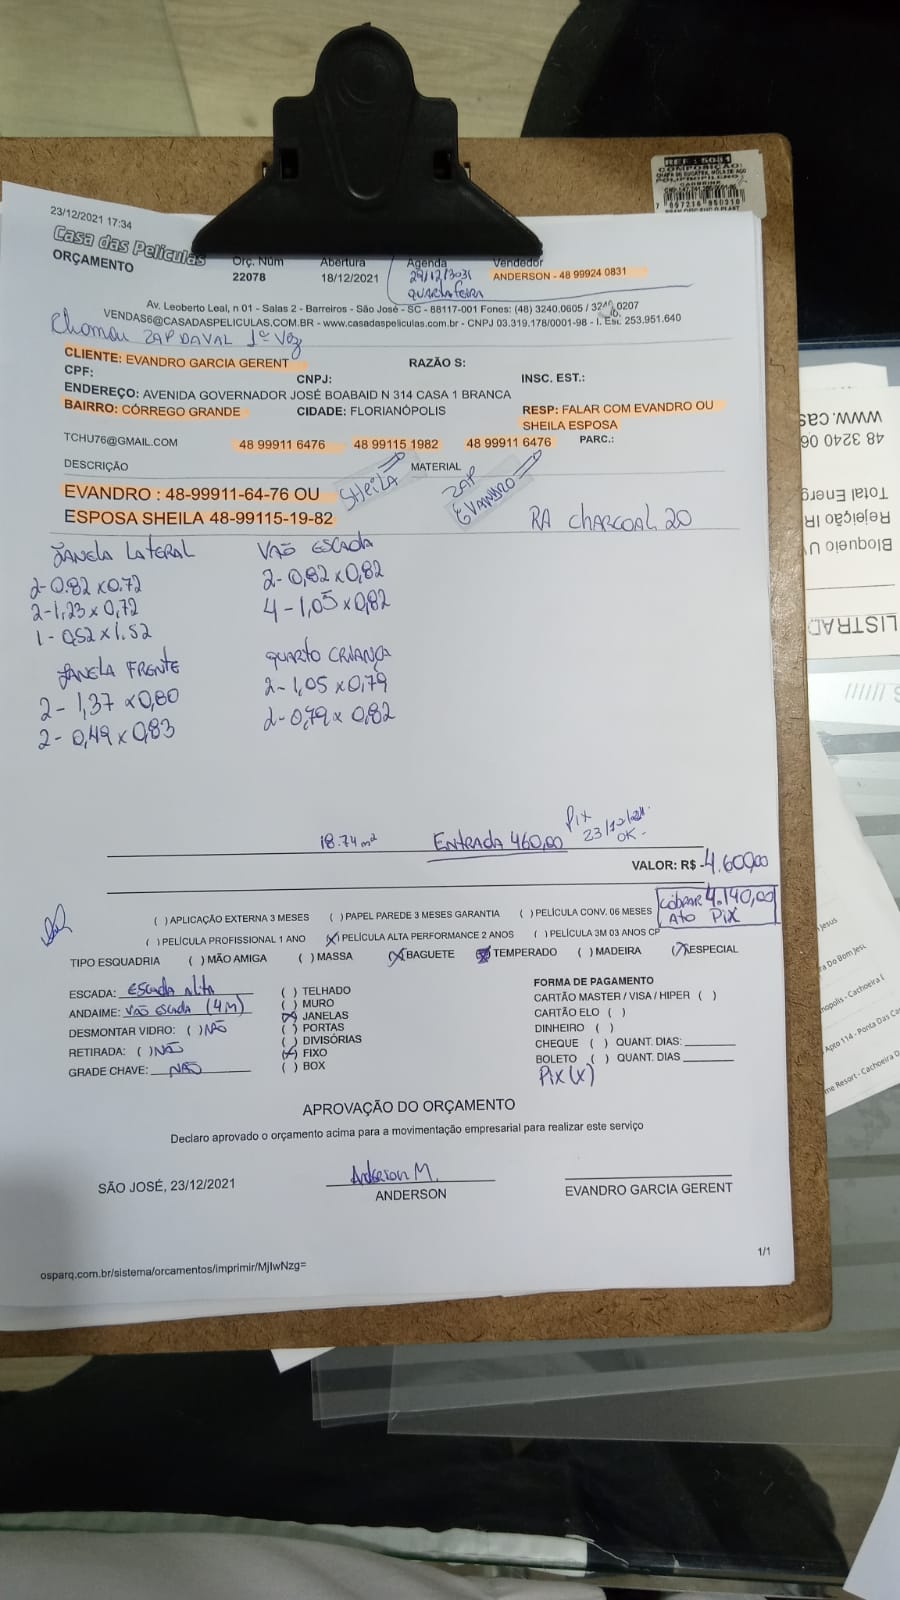 REF : 5081
COMPOSIÇÃO:
7 897236 950310
23/12/2021 17:34
Casa das Películas
ORÇAMENTO
Orç. Núm Abertura Agenda Vendedor
22078 18/12/2021 ANDERSON - 48 99924 0831
QUARTA FEIRA
Av. Leoberto Leal, n 01 - Salas 2 - Barreiros - São José - SC - 88117-001 Fones: (48) 3240.0605 / 3240.0207
VENDAS6@CASADASPELICULAS.COM.BR - www.casadaspeliculas.com.br - CNPJ 03.319.178/0001-98 - I. Est. 253.951.640
Chamou ZAP DAVAL 1º Vez
CLIENTE: EVANDRO GARCIA GERENT RAZÃO S:
CPF: CNPJ: INSC. EST.:
ENDEREÇO: AVENIDA GOVERNADOR JOSÉ BOABAID N 314 CASA 1 BRANCA
BAIRRO: CÓRREGO GRANDE CIDADE: FLORIANÓPOLIS RESP: FALAR COM EVANDRO OU
SHEILA ESPOSA
TCHU76@GMAIL.COM 48 99911 6476 48 99115 1982 48 99911 6476 PARC.:
DESCRIÇÃO MATERIAL
SHEILA ZAP EVANDRO
EVANDRO : 48-99911-64-76 OU
ESPOSA SHEILA 48-99115-19-82
RA CHARCOAL 20
JANELA LATERAL VÃO ESCADA
2-0.82 x 0.72 2-0,82 x 0,82
2-1,23 x 0,72 4-1,05 x 0,82
1-0,52 x 1.52
JANELA FRENTE QUARTO CRIANÇA
2-1,37 x 0,80 2-1,05 x 0,79
2-0,49 x 0,83 2-0,79 x 0,82
18.74 m² Entrada 460,00 Pix 23/12/21. OK.
VALOR: R$ 4.600,00
Cobrar 4.140,00
Ato Pix
( ) APLICAÇÃO EXTERNA 3 MESES ( ) PAPEL PAREDE 3 MESES GARANTIA ( ) PELÍCULA CONV. 06 MESES
( ) PELÍCULA PROFISSIONAL 1 ANO (X) PELÍCULA ALTA PERFORMANCE 2 ANOS ( ) PELÍCULA 3M 03 ANOS CP
TIPO ESQUADRIA ( ) MÃO AMIGA ( ) MASSA (X) BAGUETE (X) TEMPERADO ( ) MADEIRA (X) ESPECIAL
ESCADA: ESCADA ALTA
ANDAIME: VÃO ESCADA (4M)
DESMONTAR VIDRO: ( ) NÃO
RETIRADA: ( ) NÃO
GRADE CHAVE: NÃO
( ) TELHADO
( ) MURO
(X) JANELAS
( ) PORTAS
( ) DIVISÓRIAS
(X) FIXO
( ) BOX
FORMA DE PAGAMENTO
CARTÃO MASTER / VISA / HIPER ( )
CARTÃO ELO ( )
DINHEIRO ( )
CHEQUE ( ) QUANT. DIAS:
BOLETO ( ) QUANT. DIAS
Pix (X)
APROVAÇÃO DO ORÇAMENTO
Declaro aprovado o orçamento acima para a movimentação empresarial para realizar este serviço
SÃO JOSÉ, 23/12/2021
Anderson M.
ANDERSON
EVANDRO GARCIA GERENT
1/1
osparq.com.br/sistema/orcamentos/imprimir/MjIwNzg=
www.cas
48 3240 06
Total Energ
Rejeição IR
Bloqueio U
LISTRAD
Jesus
a Do Bom Jesu
nopolis - Cachoeira (
Apto 114 - Ponta Das Can
me Resort - Cachoeira D